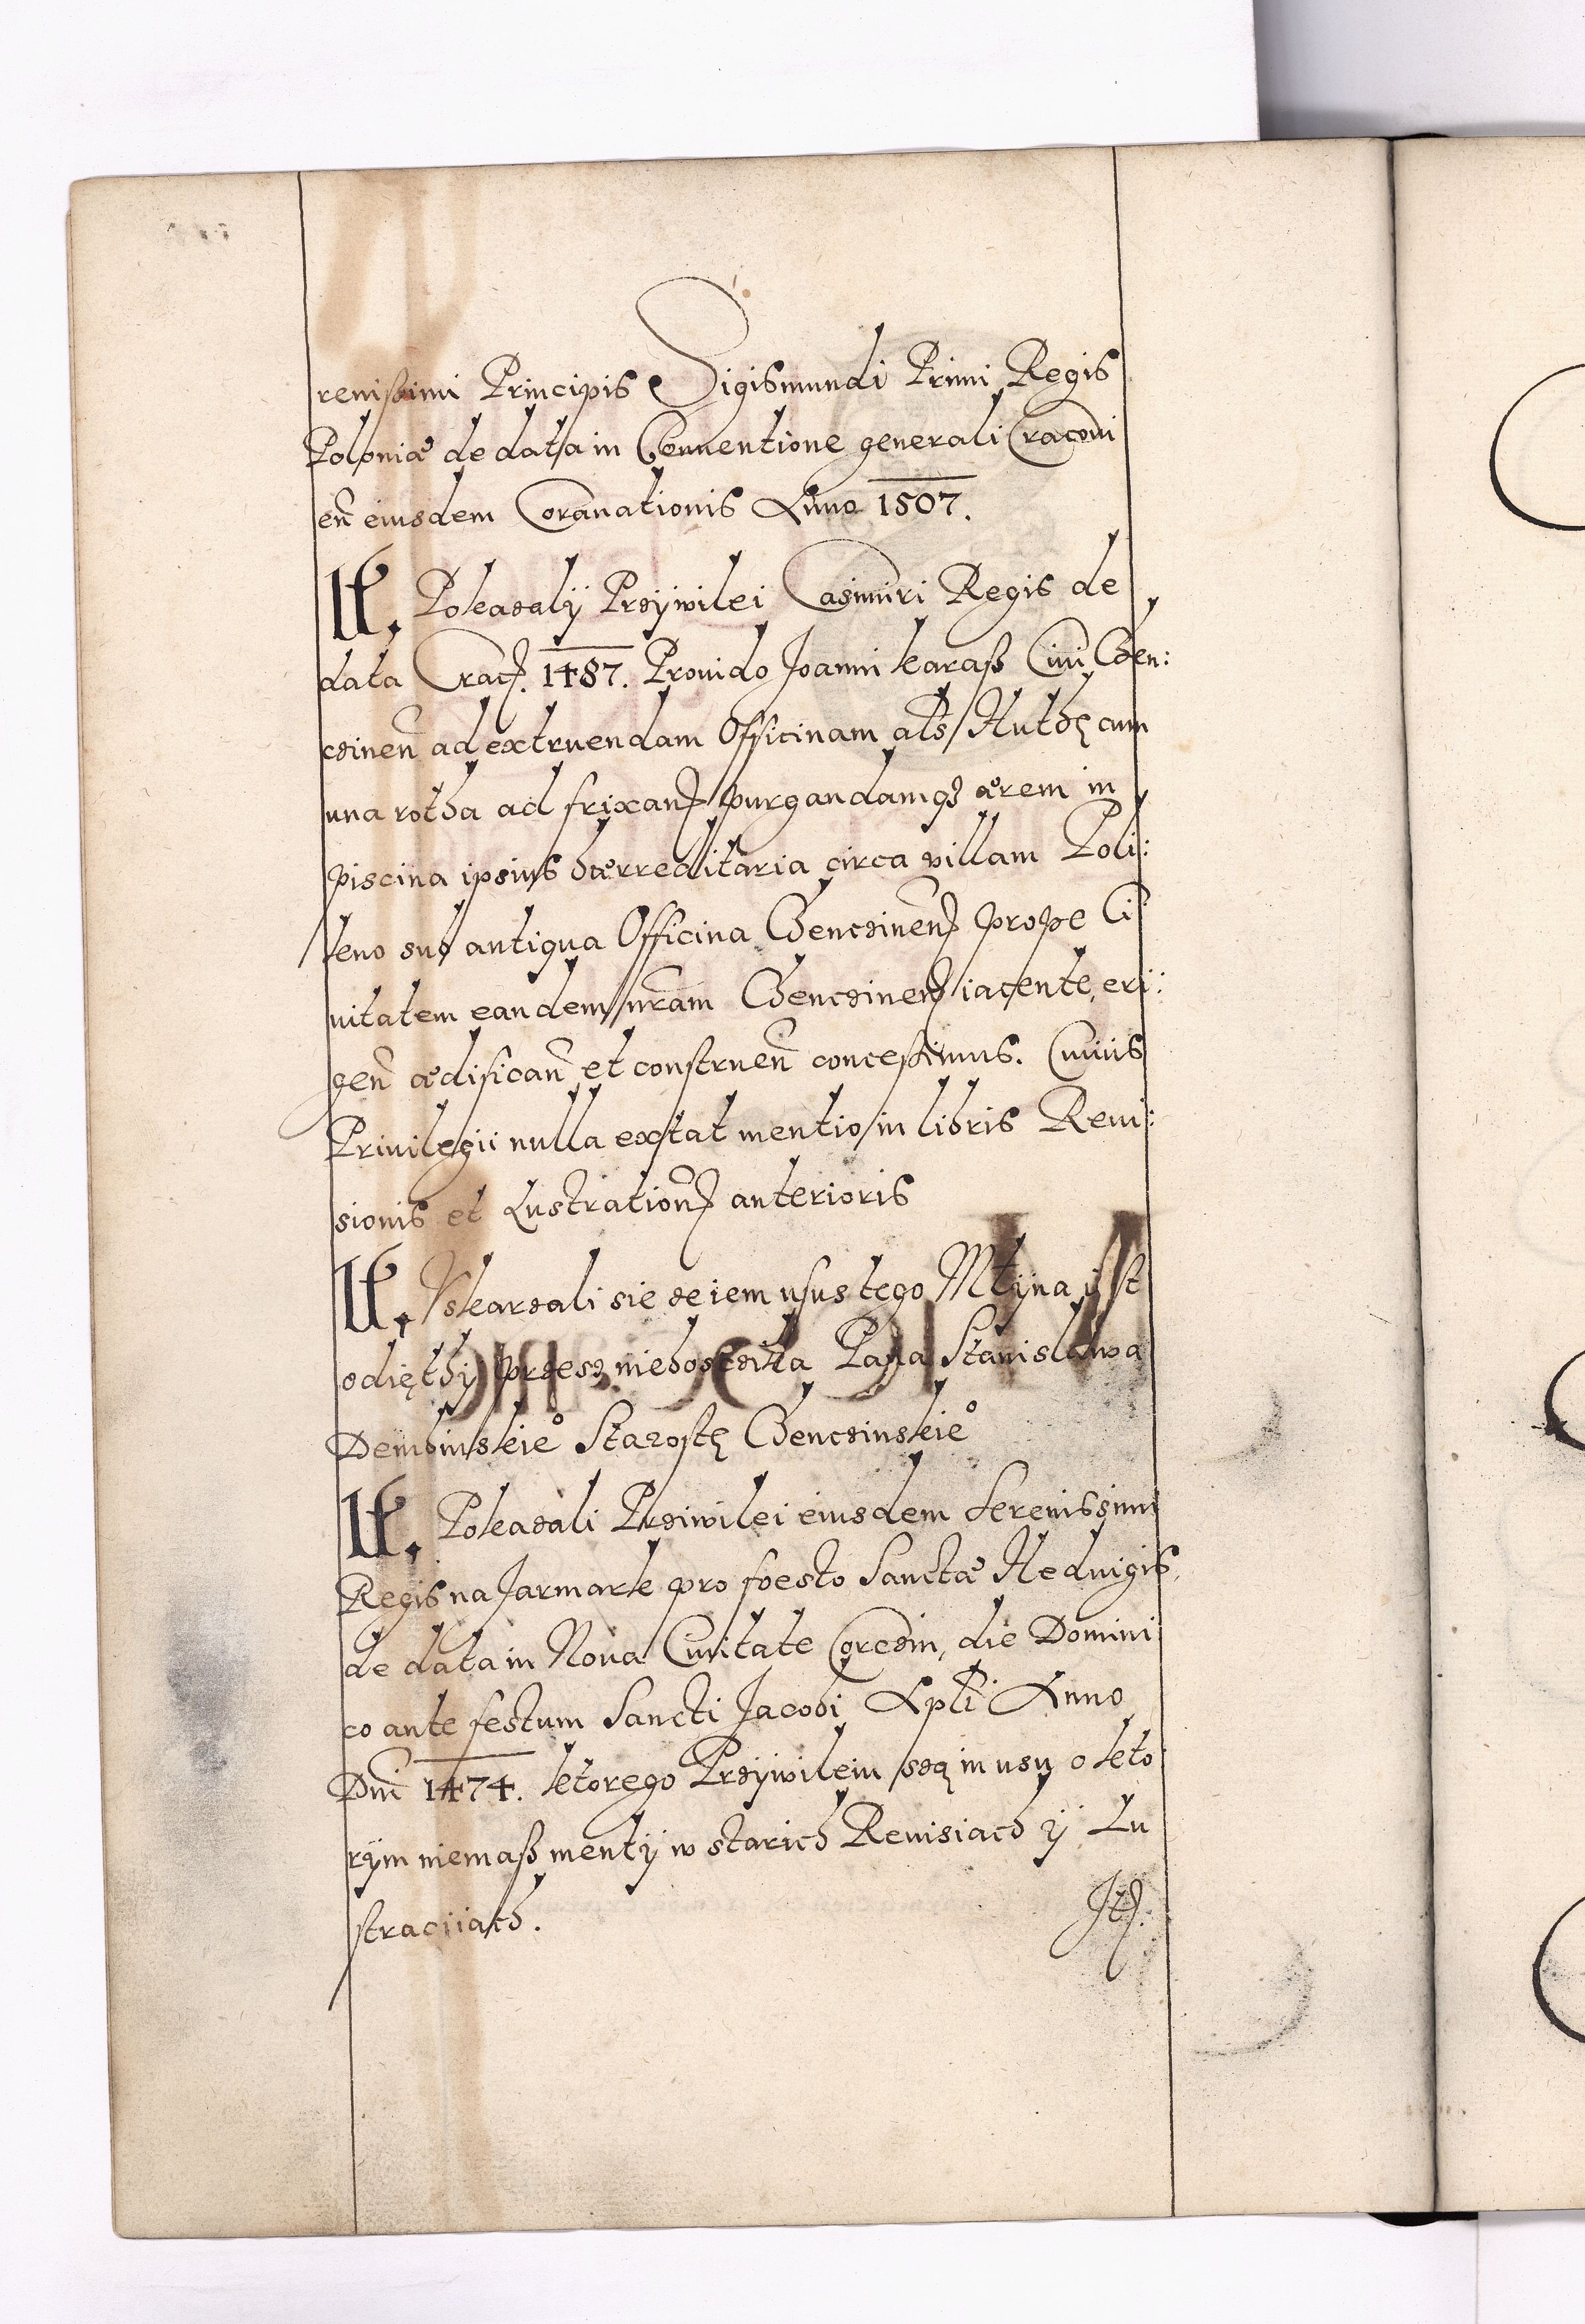 renißimi Principis Sigismundi Primi Regis
Poloniæ de data in Conuentione generali Cracoui
eñ eiusdem Coronationis Anno 1507.
It. Pokazaly Przywilei Casimiri Regis de
data Crac. 1487. Prouido Joanni karaß Ciui Chen:
czineñ ad extruendam Officinam als Huthę cum
una rotha ad frixanɖ purgandamqȝ ærem in
piscina ipsius hærreditaria circa villam Poli:
kno sub antiqua Officina Chenczinenſ prope Ci
uitatem eandem nr̃am Chenczinenſ iacente, eri:
geñ ædificañ et construeñ conceßimus. Cuius
Priuilegii nulla extat mentio in libris Reui:
sionis et Lustrationſ anterioris
It. Vskarzali sie ze iem usus tego Młyna iest
odięthy przesz niebosczika Pana Stanisława
Dembinskie° Starostę Chenczinskie°
It. Pokazali Prziwilei eiusdem Serenissimi
Regis na Jarmark pro foesto Sanctæ Heduigis,
de data in Noua Ciuitate Corczin, die Domini
co ante festum Sancti Jacobi Apli Anno
Dni 1474. ktorego Przywileiu sczą in usu o kto
rym niemaß mentÿ w starich Reuisiach ÿ Lu
straciiach.
Itſ.